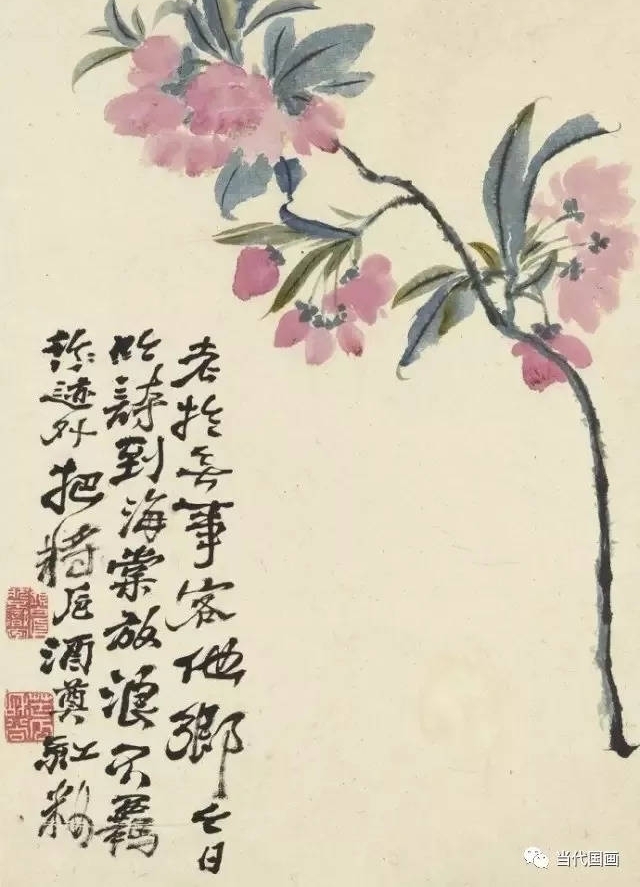 老於無事客他鄉今日
吟詩到海棠放浪不羈
形迹外把將卮酒奠紅粧
当代国画